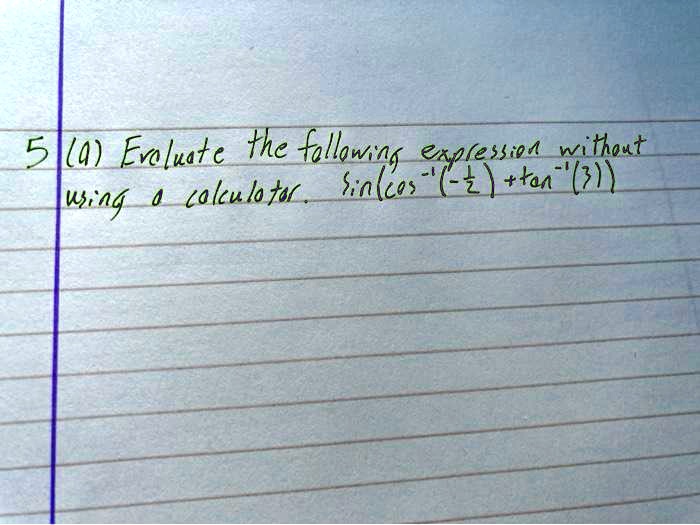 5 (a) Evaluate the following expression without
using a calculator. Sin(cos⁻¹(-½) + tan⁻¹(3))